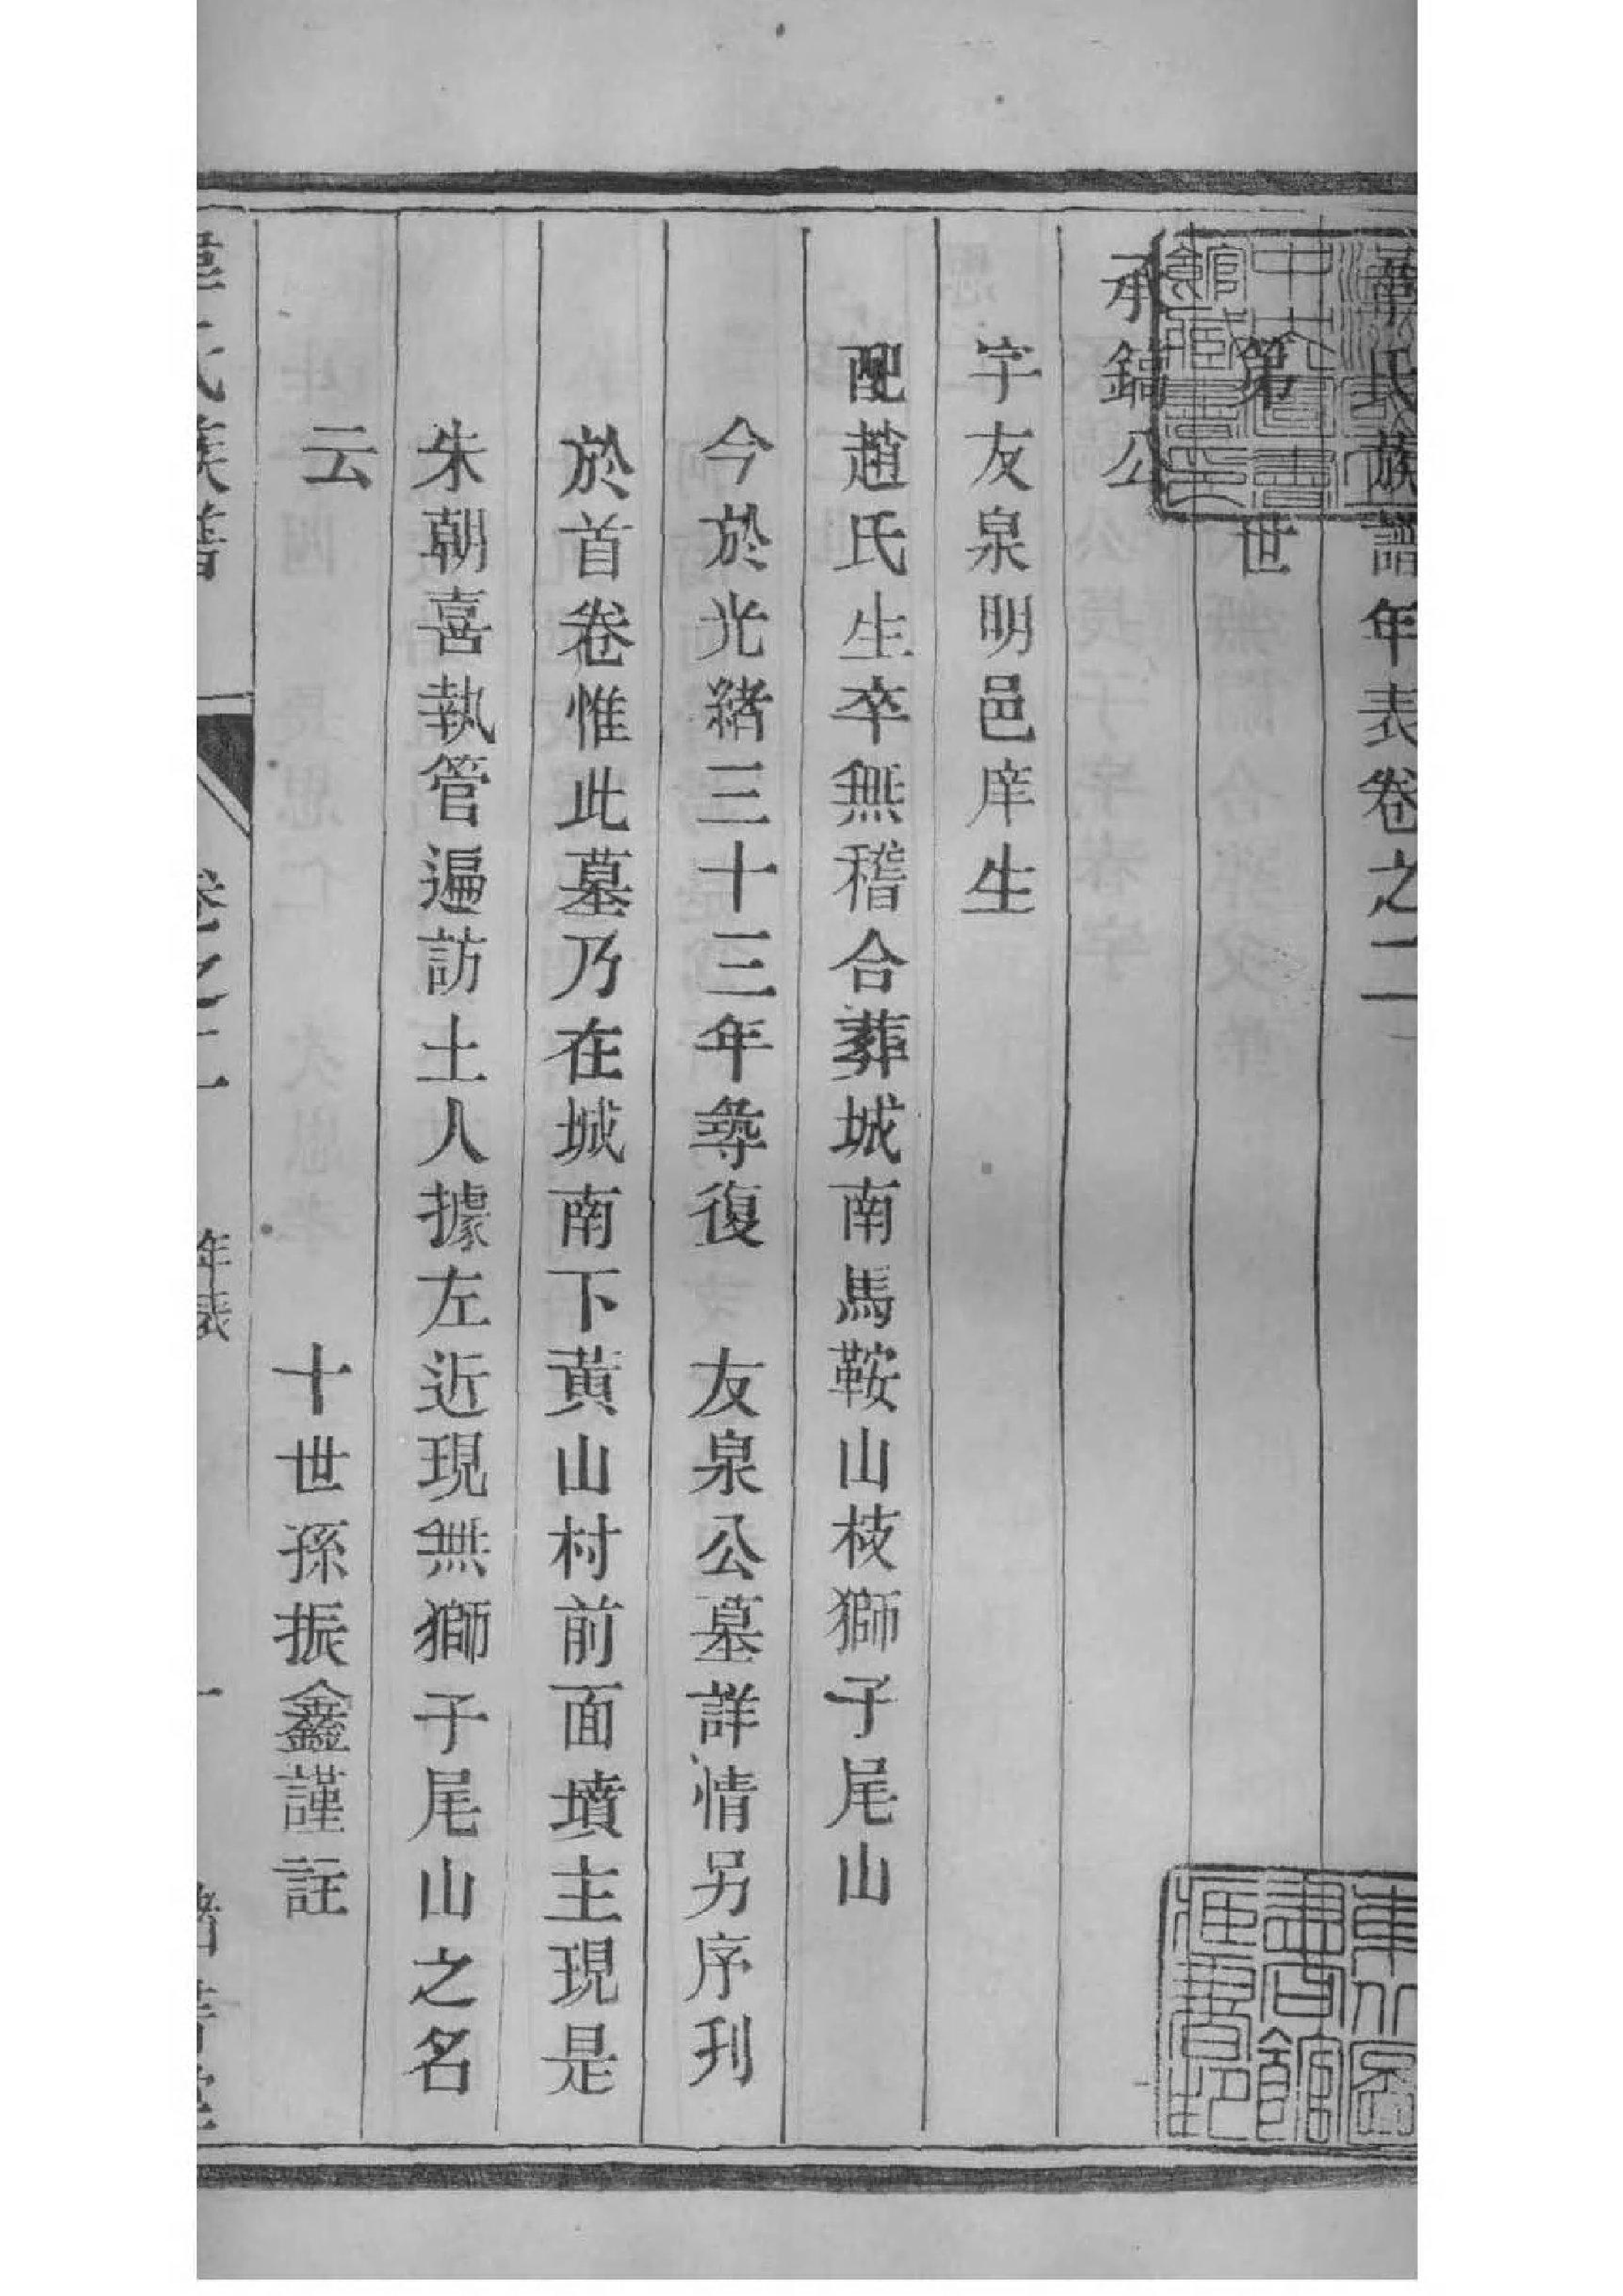 韋氏族譜年表卷之二
第 世
承鎬公
字友泉明邑庠生
配趙氏生卒無稽合葬城南馬鞍山枝獅子尾山
今於光緒三十三年尋復 友泉公墓詳情另序刋
於首卷惟此墓乃在城南下黃山村前面墳主現是
朱朝喜執管遍訪土人據左近現無獅子尾山之名
云 十世孫振鑫謹註
韋氏族譜 卷之二 年表 一